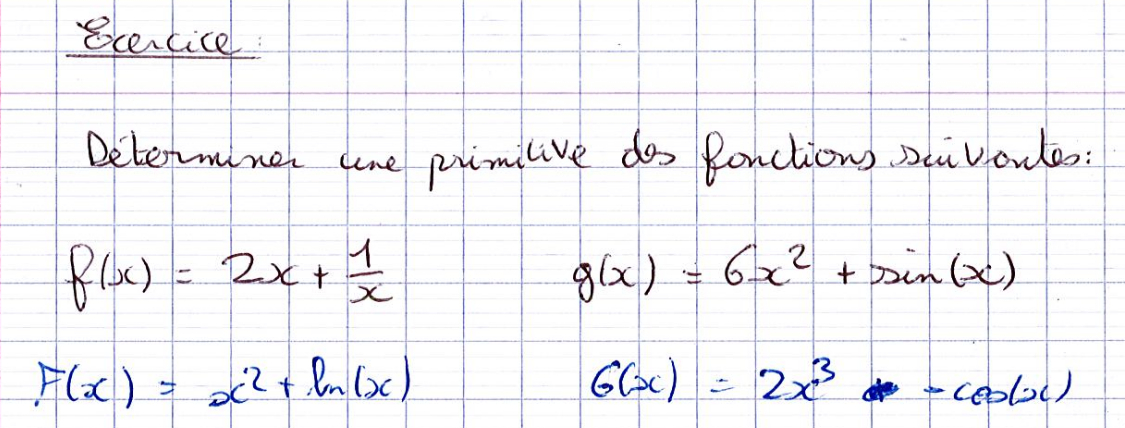 Exercice :
Déterminer une primitive des fonctions suivantes:
f(x) = 2x + 1/x g(x) = 6x² + sin(x)
F(x) = x² + ln(x) G(x) = 2x³ - cos(x)